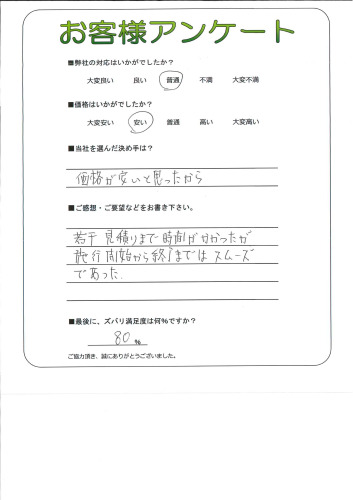 お客様アンケート
■弊社の対応はいかがでしたか？
大変良い 良い 普通 不満 大変不満
■価格はいかがでしたか？
大変安い 安い 普通 高い 大変高い
■当社を選んだ決め手は？
価格が安いと思ったから
■ご感想・ご要望などをお書き下さい。
若干 見積りまで時間がかかったが
施行開始から終了まではスムーズ
であった.
■最後に、ズバリ満足度は何%ですか？
80 %
ご協力頂き、誠にありがとうございました。